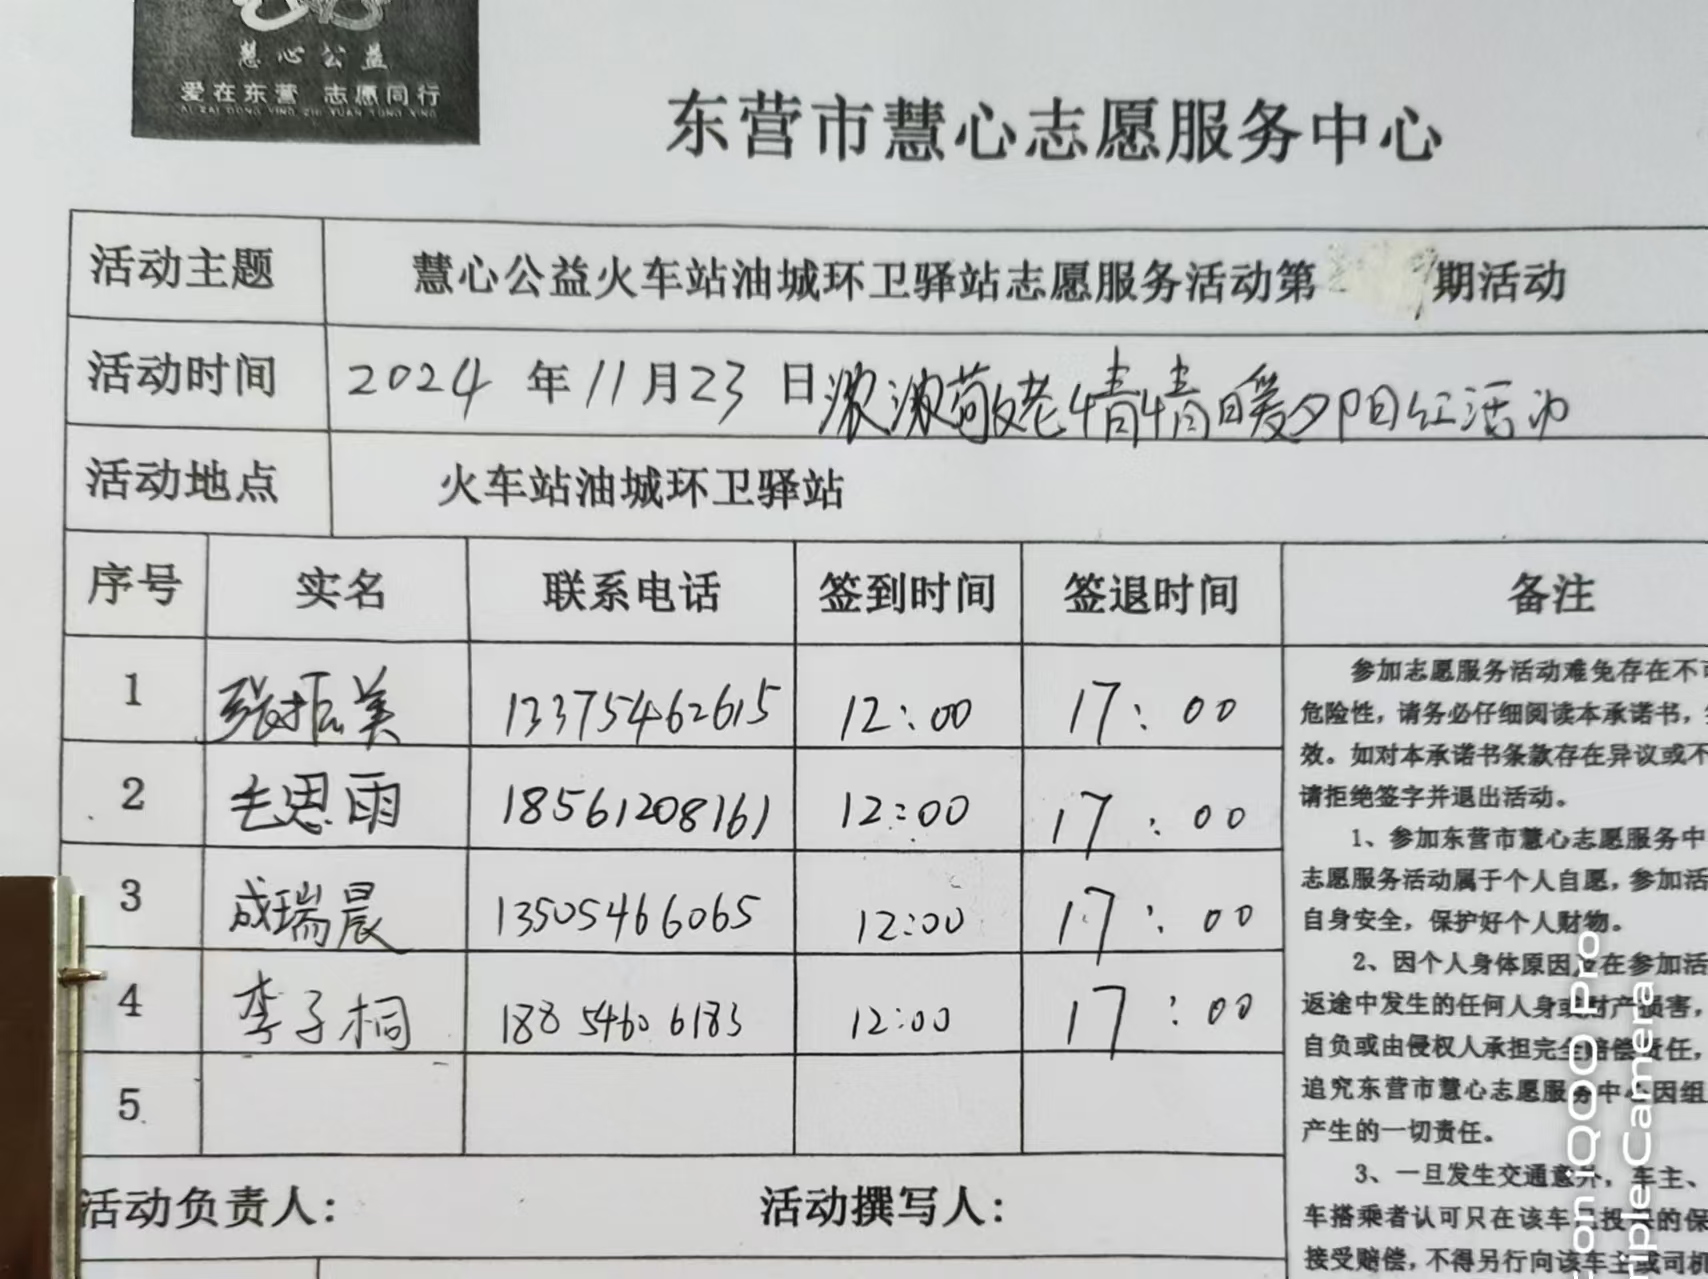 慧心公益
爱在东营 志愿同行
AI ZAI DONG YING ZHI YUAN TONG XING
东营市慧心志愿服务中心
活动主题 慧心公益火车站油城环卫驿站志愿服务活动第 期活动
活动时间 2024 年 11 月 23 日 浓浓敬老情情暖夕阳红活动
活动地点 火车站油城环卫驿站
序号 实名 联系电话 签到时间 签退时间 备注
1 张振美 13375462615 12:00 17:00
2 毛思雨 18561208161 12:00 17:00
3 成瑞晨 13505466065 12:00 17:00
4 李子桐 18854606183 12:00 17:00
5
参加志愿服务活动难免存在不可
危险性，请务必仔细阅读本承诺书，
效。如对本承诺书条款存在异议或不
请拒绝签字并退出活动。
1、参加东营市慧心志愿服务中
志愿服务活动属于个人自愿，参加活
自身安全，保护好个人财物。
2、因个人身体原因 在参加活
返途中发生的任何人身或财产损害，
自负或由侵权人承担完全赔偿责任，
追究东营市慧心志愿服务中心因组
产生的一切责任。
3、一旦发生交通意外，车主、
车搭乘者认可只在该车已投保的保
接受赔偿，不得另行向该车主或司机
活动负责人： 活动撰写人：
on iQOO Pro
iple Camera